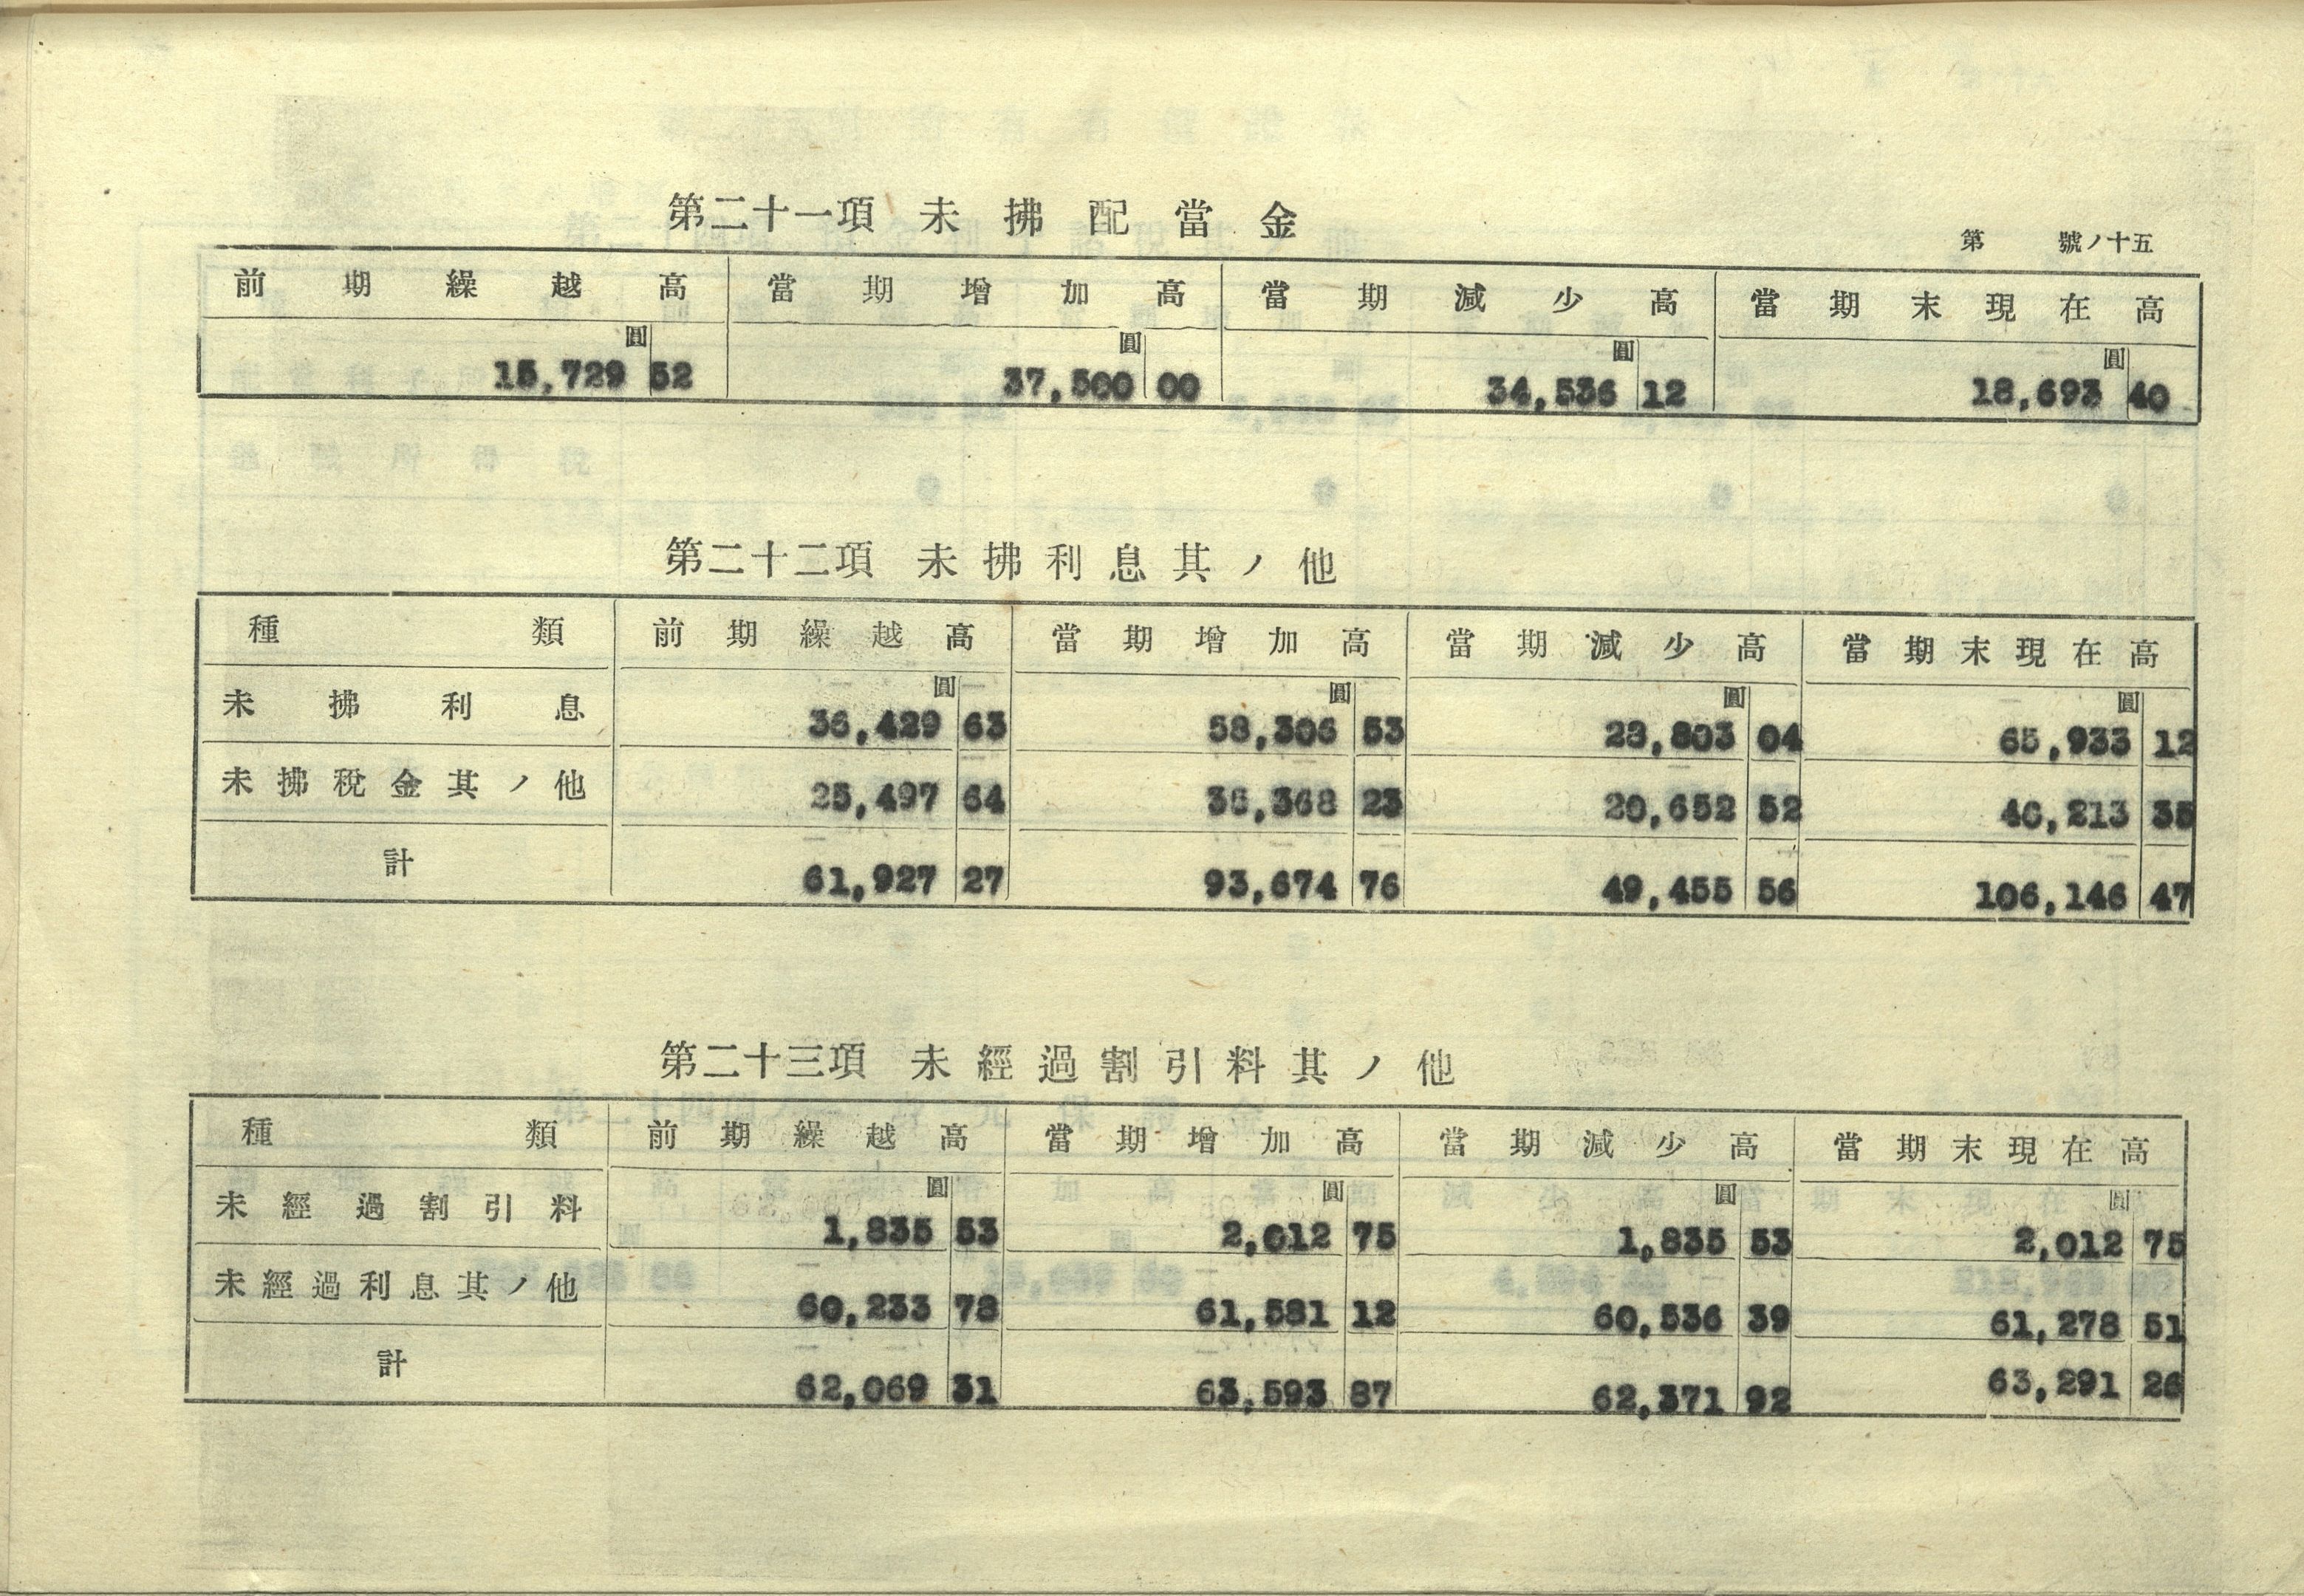 第二十一項 未拂配當金
第 號ノ十五
前期繰越高 當期增加高 當期減少高 當期末現在高
圓 圓 圓 圓
15,729 52 37,500 00 34,536 12 18,693 40
第二十二項 未拂利息其ノ他
種類 前期繰越高 當期增加高 當期減少高 當期末現在高
圓 圓 圓 圓
未拂利息 36,429 63 58,306 53 28,803 04 65,933 12
未拂稅金其ノ他 25,497 64 35,368 23 20,652 52 40,213 35
計 61,927 27 93,674 76 49,455 56 106,146 47
第二十三項 未經過割引料其ノ他
種類 前期繰越高 當期增加高 當期減少高 當期末現在高
圓 圓 圓 圓
未經過割引料 1,835 53 2,012 75 1,835 53 2,012 75
未經過利息其ノ他 60,233 78 61,581 12 60,536 39 61,278 51
計 62,069 31 63,593 87 62,371 92 63,291 26